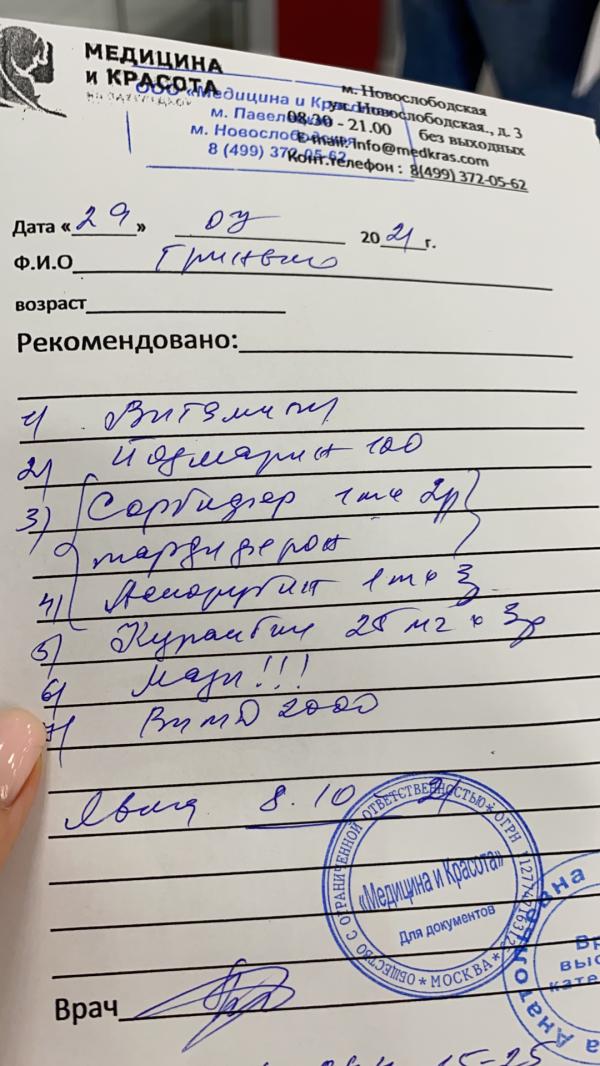 МЕДИЦИНА
и КРАСОТА
ООО «Медицина и Красота»
м. Павелецкая
м. Новослободская
8 (499) 372-05-62
м. Новослободская
ул. Новослободская., д. 3
08:30 - 21.00 без выходных
E-mail: Info@medkras.com
Конт.телефон : 8(499) 372-05-62
Дата «29» 2021 г.
Ф.И.О
возраст
Рекомендовано:
1) Витамины
2) Йодмарин 100
3) Сорбифер 1 т × 2р
тардиферон
4) Аскорутин 1 т × 3
5) Курантил 25 мг × 3р
6) Мази!!!
7) Вит D 2000
Явка 8.10 21
ОБЩЕСТВО С ОГРАНИЧЕННОЙ ОТВЕТСТВЕННОСТЬЮ * ОГРН
«Медицина и Красота»
Для документов
* МОСКВА *
Анатольевна
Вр
высш
кате
Врач
15-25